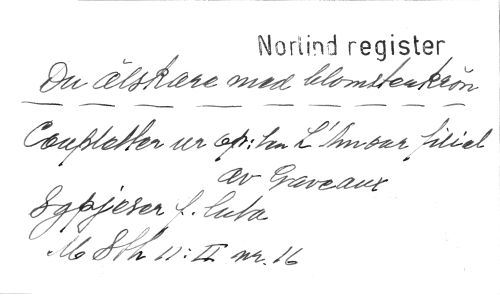 Norlind register
Du älskare med blomsterkrön
Coupletter ur op:n L'Amour filial
av Gaveaux
Sgpjeser f. luta
M Sth 11: II nr. 16